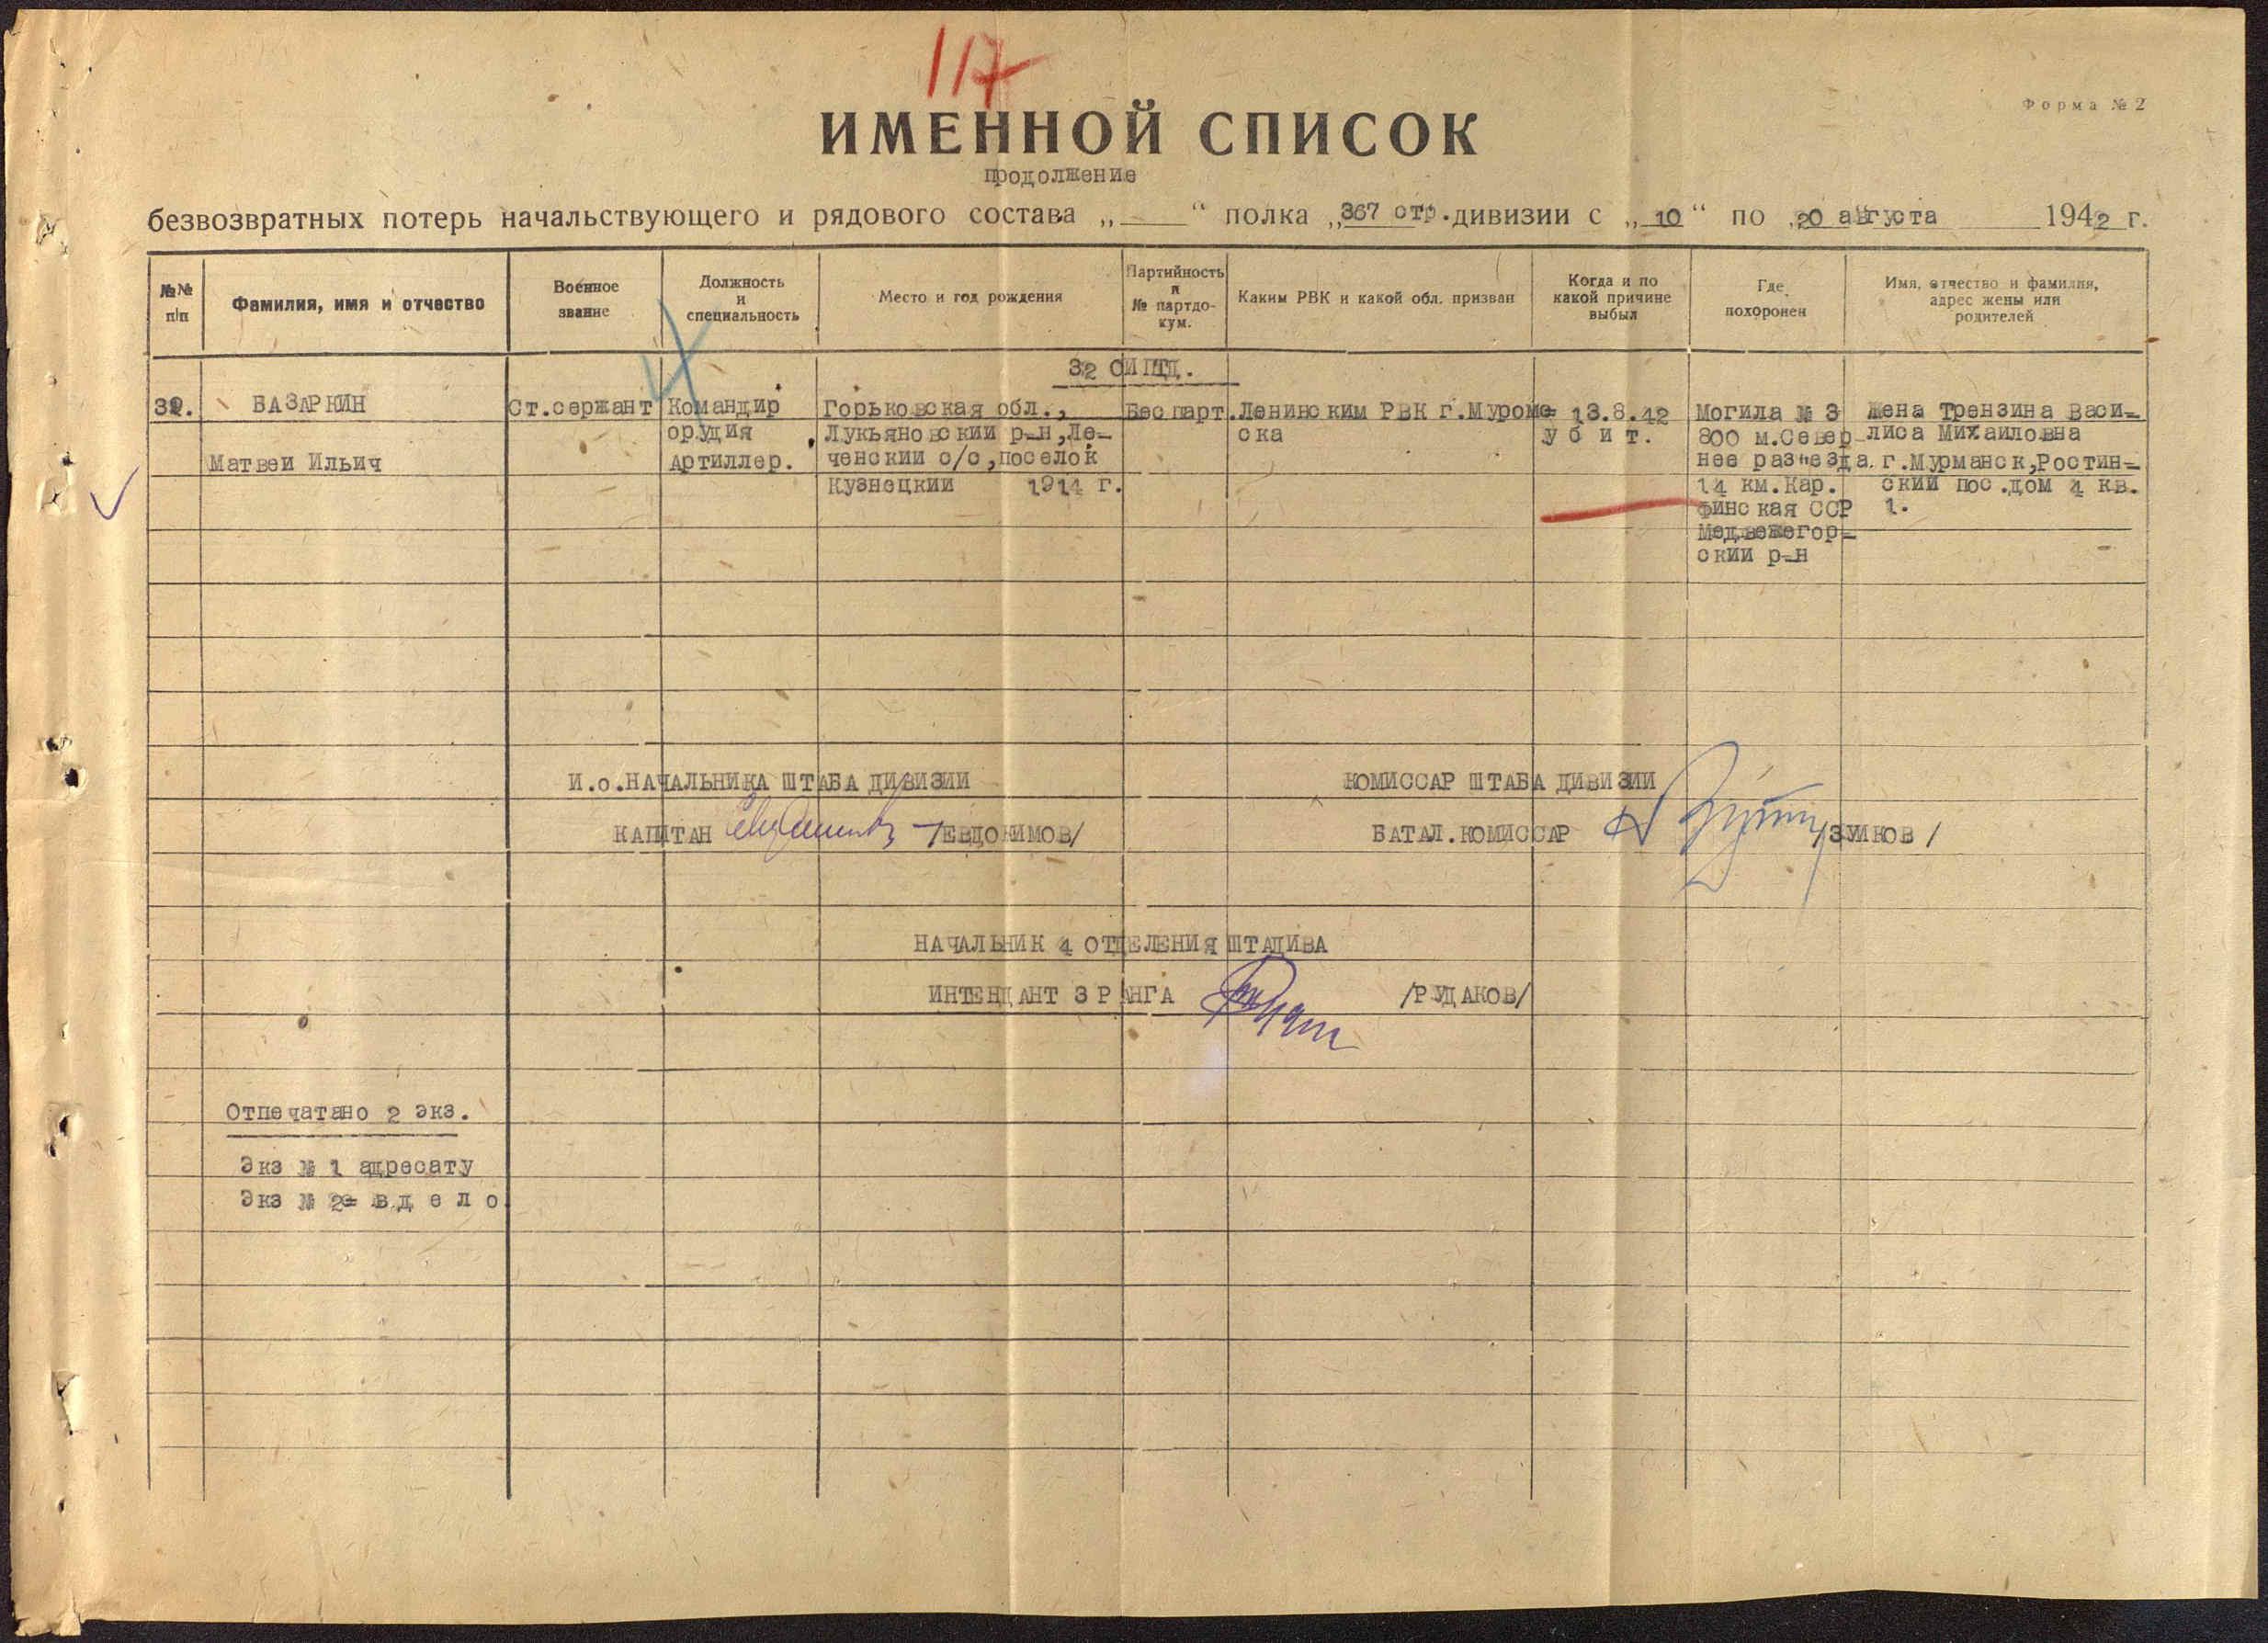 117
Форма № 2
ИМЕННОЙ СПИСОК
продолжение
безвозвратных потерь начальствующего и рядового состава „ “ полка „367 стр. дивизии с „10“ по „20 августа 1942 г.
№№ п/п
Фамилия, имя и отчество
Военное звание
Должность и специальность
Место и год рождения
Партийность и № партдокум.
Каким РВК и какой обл. призван
Когда и по какой причине выбыл
Где похоронен
Имя, отчество и фамилия, адрес жены или родителей
32 ОИПТД.
32.
БАЗАРКИН
Матвеи Ильич
Ст.сержант
Командир
орудия
Артиллер.
Горьковская обл.,
Лукьяновскии р-н, Ле-
ченскии с/с, поселок
Кузнецкии 1914 г.
Беспарт.
Ленинским РВК г.Муроме-
ска
13.8.42
у б и т.
Могила № 3
800 м.Север
нее раз"езда
14 км.Кар.
Финская ССР
Медвежегор-
скии р-н
Жена Трензина Васи-
лиса Михаиловна
г.Мурманск,Ростин-
скии пос.дом 4 кв.
1.
И.о.НАЧАЛЬНИКА ШТАБА ДИВИЗИИ
КАПИТАН /ЕВДОКИМОВ/
КОМИССАР ШТАБА ДИВИЗИИ
БАТАЛ.КОМИССАР /ЗУИКОВ /
НАЧАЛЬНИК 4 ОТДЕЛЕНИЯ ШТАДИВА
ИНТЕНДАНТ 3 РАНГА /РУДАКОВ/
Отпечатано 2 экз.
Экз № 1 адресату
Экз № 2- в д е л о